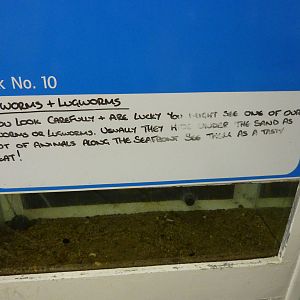 k No. 10
WORMS + LUGWORMS
OU LOOK CAREFULLY + ARE LUCKY YOU MIGHT SEE ONE OF OUR
WORMS OR LUGWORMS. USUALLY THEY HIDE UNDER THE SAND AS
OT OF ANIMALS ALONG THE SEAFRONT SEE THEM AS A TASTY
EAT!